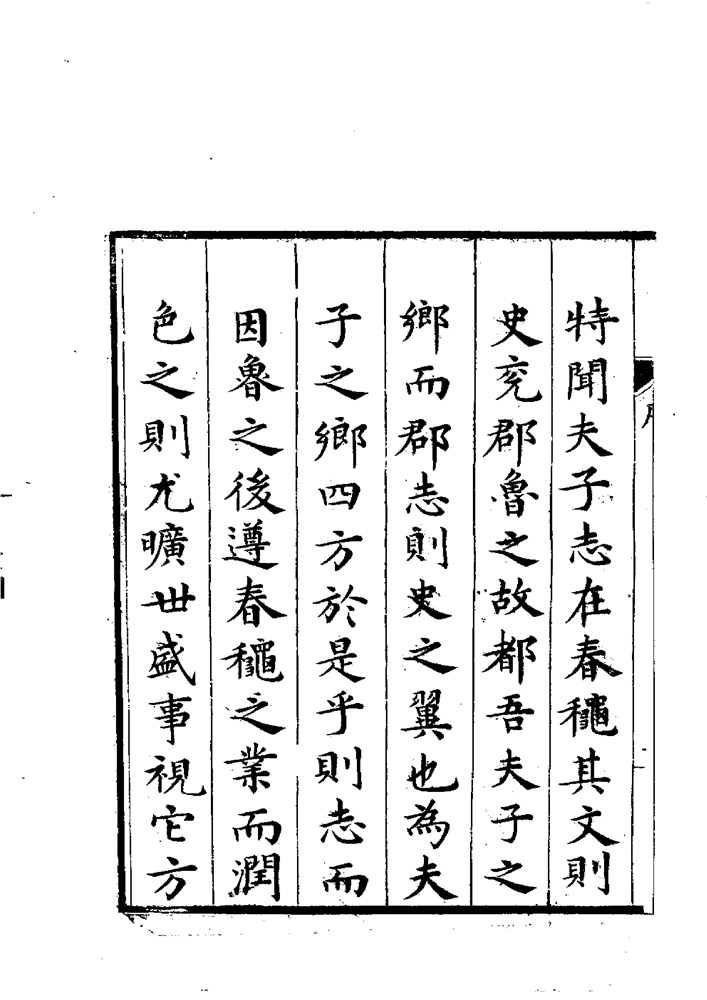 特聞夫子志在春龝其文則
史兖郡魯之故都吾夫子之
鄉而郡志則史之翼也為夫
子之鄉四方於是乎則志而
因魯之後遵春龝之業而潤
色之則尤曠世盛事視它方